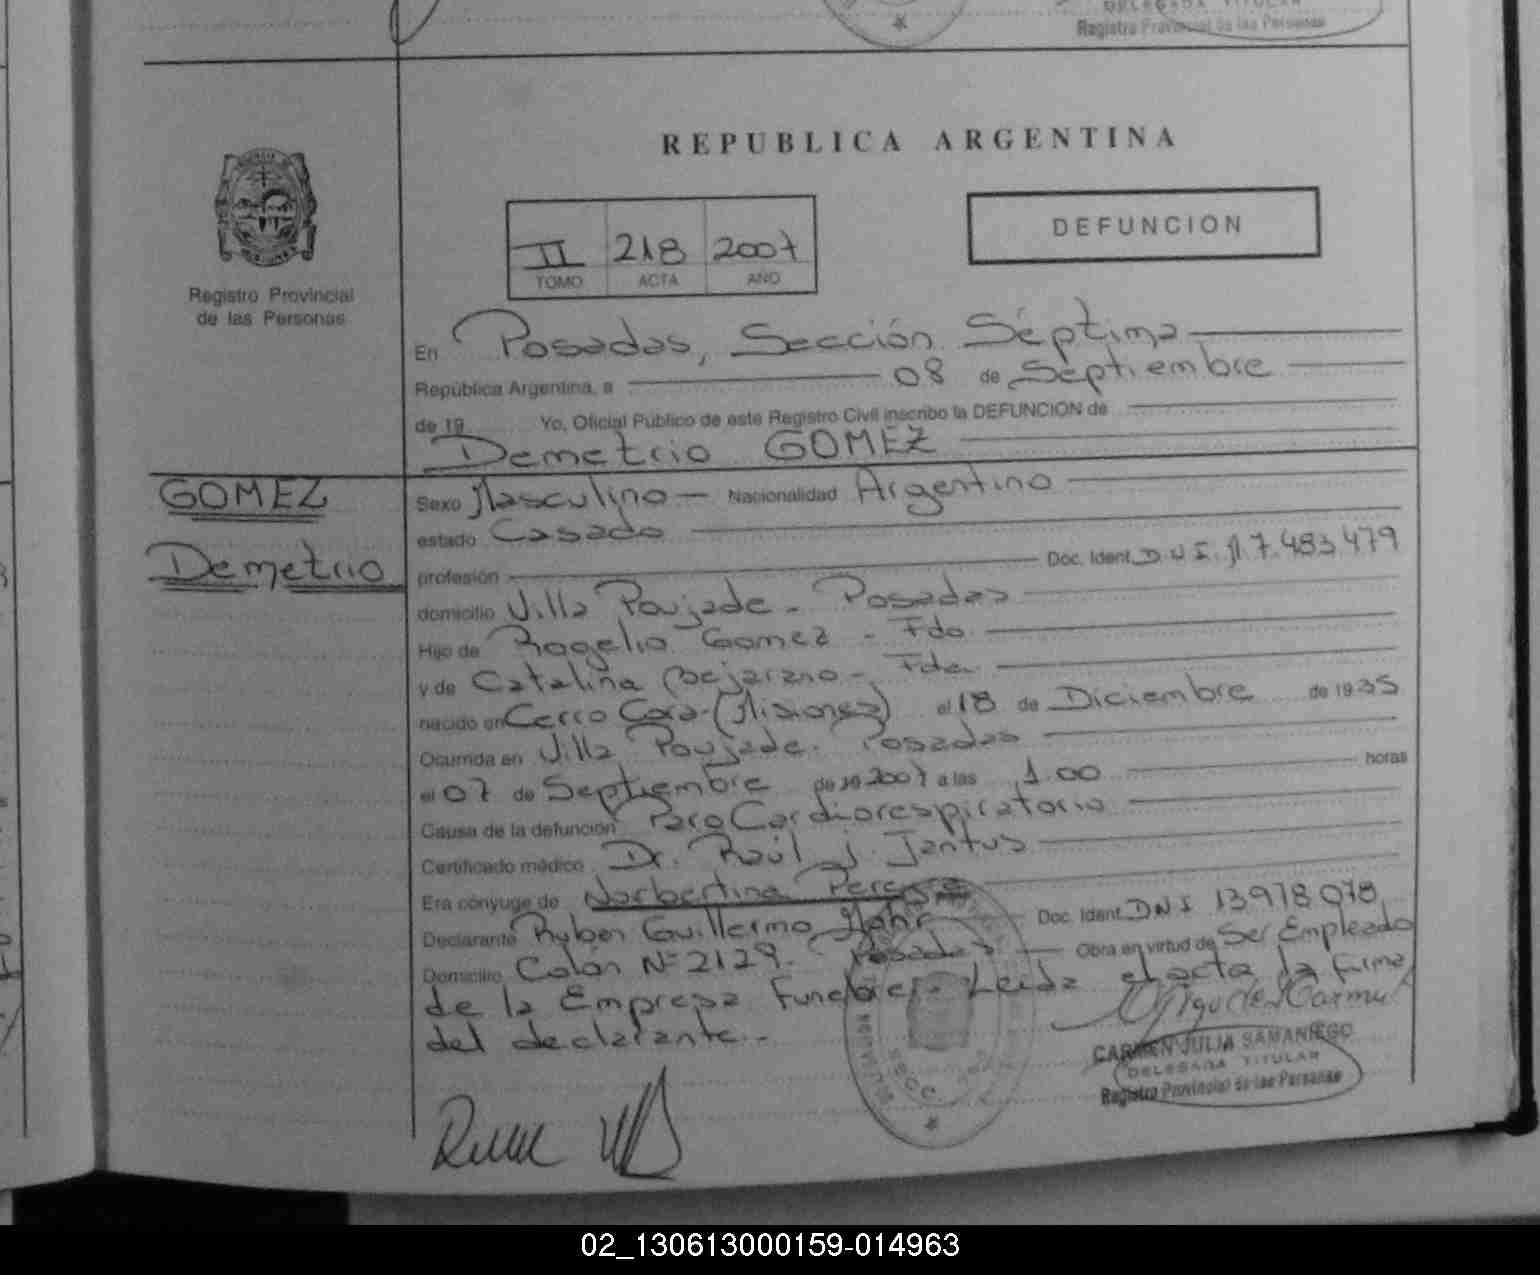 DELEGADA TITULAR
Registro Provincial de las Personas
REPUBLICA ARGENTINA
II 218 2007
TOMO ACTA AÑO
DEFUNCION
Registro Provincial
de las Personas
En Posadas, Sección Séptima
República Argentina, a 08 de Septiembre
de 19 Yo, Oficial Público de este Registro Civil inscribo la DEFUNCION de
Demetrio GOMEZ
GOMEZ
Demetrio
Sexo Masculino - Nacionalidad Argentino
estado Casado
profesión Doc. Ident. D.N.I. M. 7.483.479
domicilio Villa Poujade - Posadas
Hijo de Rogelio Gomez - Fdo.
y de Catalina Bejarano - Fda.
nacido en Cerro Cora - (Misiones) el 18 de Diciembre de 1935
Ocurrida en Villa Poujade. Posadas
el 07 de Septiembre de 19 2007 a las 1.00 horas
Causa de la defunción Paro Cardiorespiratorio
Certificado médico Dr. Raúl J. Jantus
Era cónyuge de Norbertina
Declarante Rubén Guillermo Doc. Ident. DNI 13978078
Domicilio Colón Nº 2129. Posadas Obra en virtud de Ser Empleado
de la Empresa Funebre. Leida el acta la firma
del declarante.-
CARMEN JULIA SAMANIEGO
DELEGADA TITULAR
Registro Provincial de las Personas
02_130613000159-014963